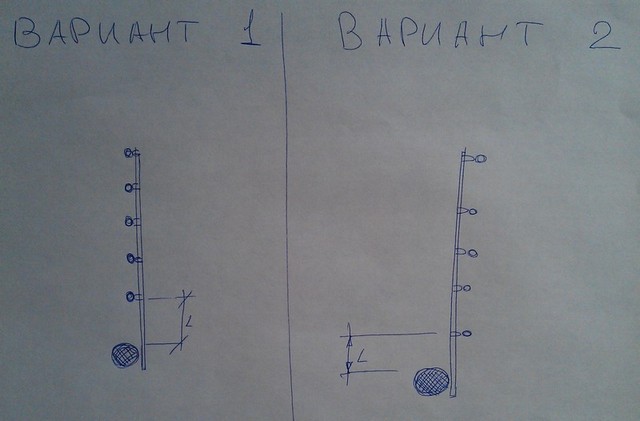 ВАРИАНТ 1
ВАРИАНТ 2
L
L